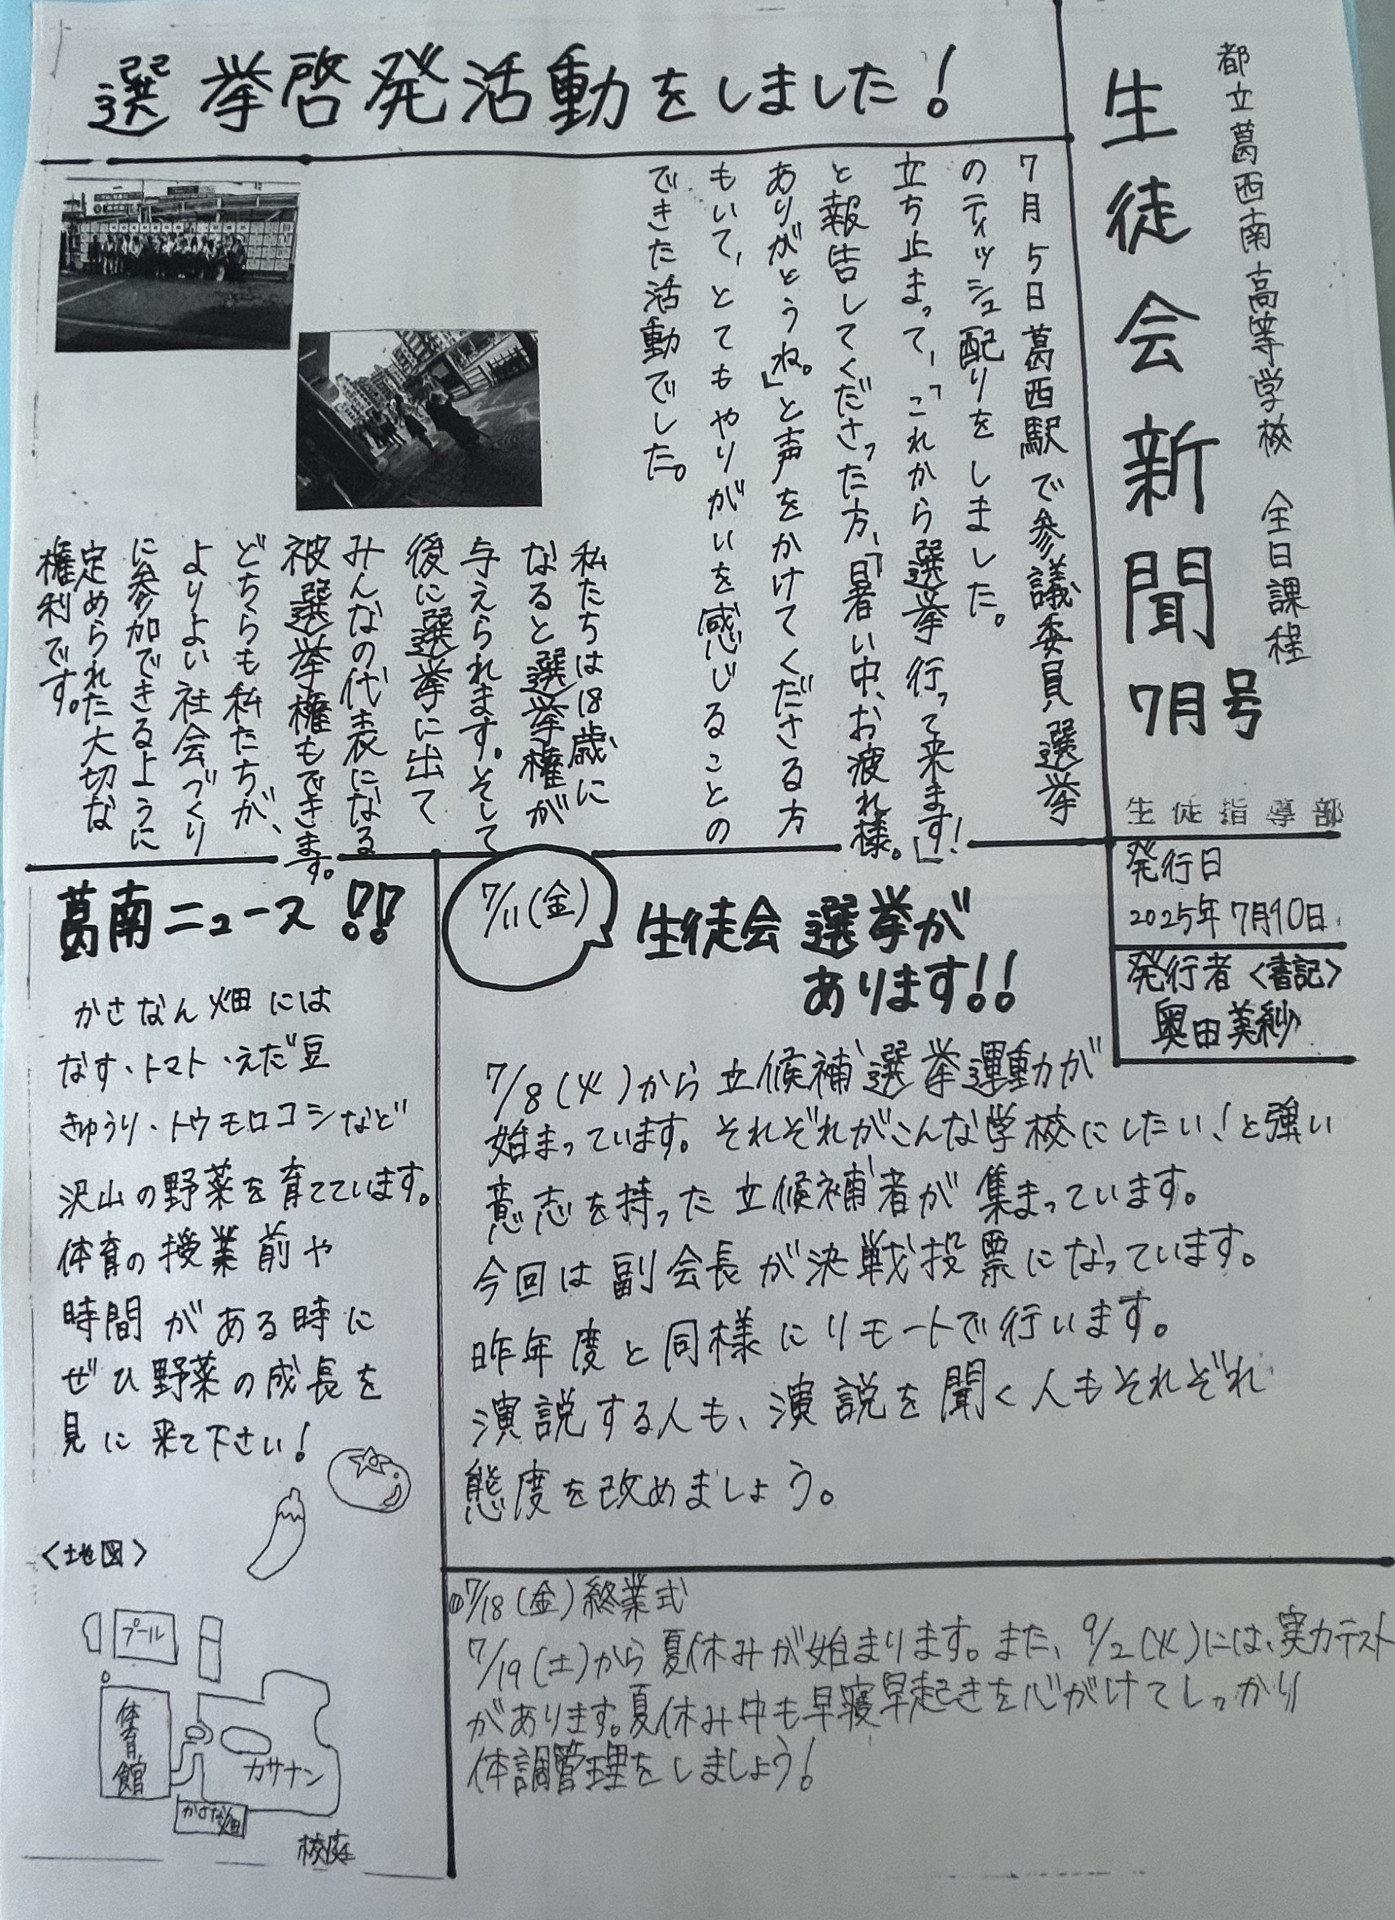 都立葛西南高等学校 全日課程
生徒会新聞
7月号
生徒指導部
発行日
2025年7月10日
発行者<書記>
奥田美紗
選挙啓発活動をしました!
7月5日葛西駅で参議委員選挙
のティッシュ配りをしました。
立ち止まって、「これから選挙行って来ます!」
と報告してくださった方、「暑い中、お疲れ様。
ありがとうね。」と声をかけてくださる方
もいて、とてもやりがいを感じることの
できた活動でした。
私たちは18歳に
なると選挙権が
与えられます。そして
後に選挙に出て
みんなの代表になる
被選挙権もできます。
どちらも私たちが、
よりよい社会づくり
に参加できるように
定められた大切な
権利です。
7/11(金)
生徒会選挙が
あります!!
7/8(火)から立候補選挙運動が
始まっています。それぞれがこんな学校にしたい!と強い
意志を持った立候補者が集まっています。
今回は副会長が決戦投票になっています。
昨年度と同様にリモートで行います。
演説する人も、演説を聞く人もそれぞれ
態度を改めましょう。
葛南ニュース!!
かさなん畑には
なす・トマト・えだ豆
きゅうり・トウモロコシなど
沢山の野菜を育てています。
体育の授業前や
時間がある時に
ぜひ野菜の成長を
見に来て下さい!
<地図>
プール
体育館
カサナン
かさなん畑
校庭
7/18(金)終業式
7/19(土)から夏休みが始まります。また、9/2(火)には、実力テスト
があります。夏休み中も早寝早起きを心がけてしっかり
体調管理をしましょう!